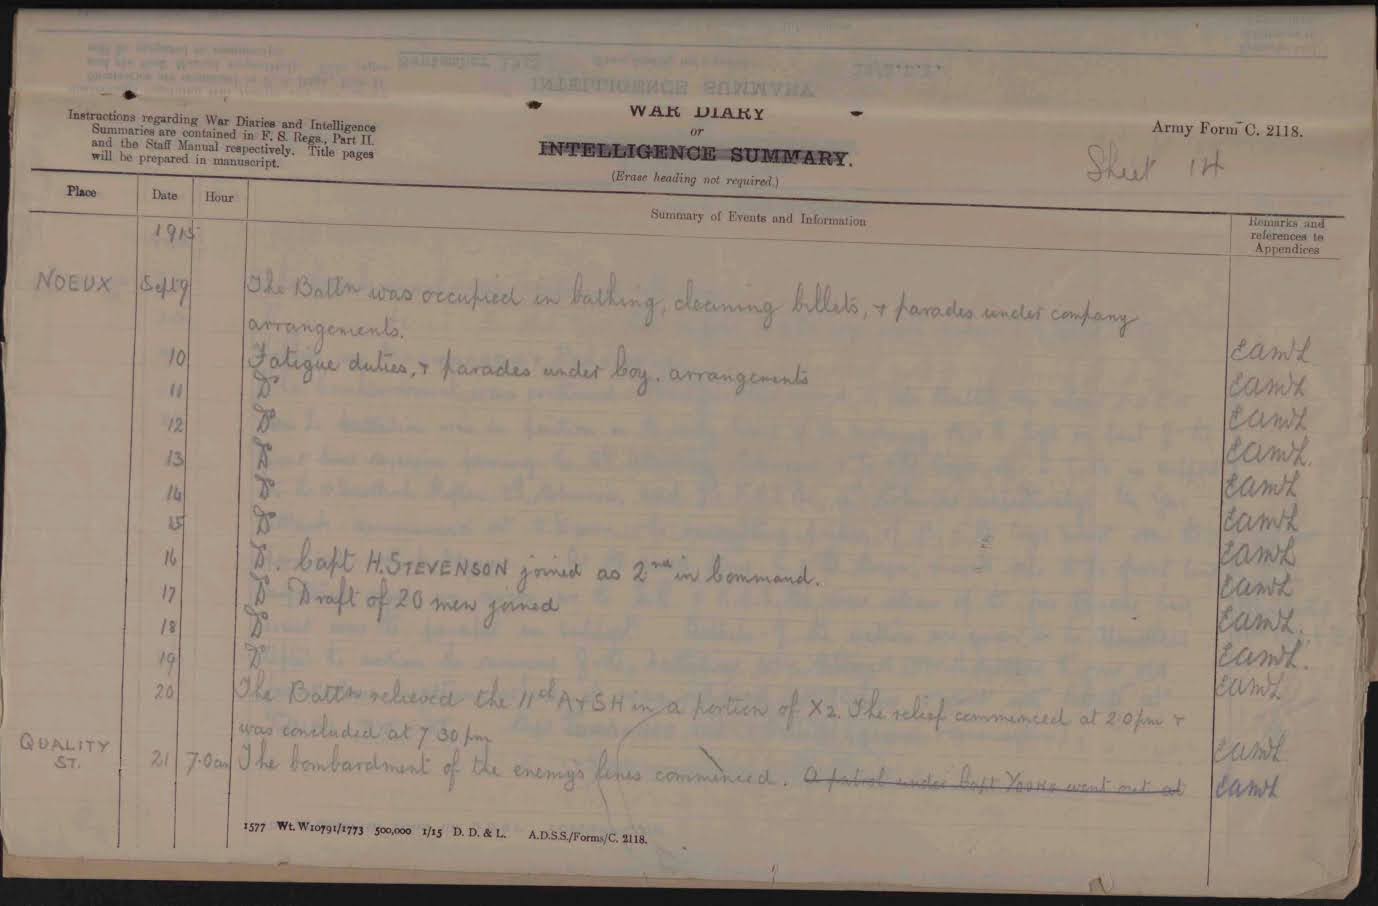 WAR DIARY
or
INTELLIGENCE SUMMARY.
(Erase heading not required.)
Instructions regarding War Diaries and Intelligence
Summaries are contained in F. S. Regs., Part II.
and the Staff Manual respectively. Title pages
will be prepared in manuscript.
Army Form C. 2118.
Sheet 14
Place Date Hour Summary of Events and Information Remarks and
references to
Appendices
1915
NOEUX Sept 9 The Battn was occupied in bathing, cleaning billets, + parades under company
arrangements. EAWL
10 Fatigue duties, + parades under Coy. arrangements EAWL
11 Do EAWL
12 Do EAWL.
13 Do EAWL
14 Do EAWL
15 Do EAWL
16 Do. Capt H. STEVENSON joined as 2nd in Command. EAWL
17 Do Draft of 20 men joined EAWL.
18 Do EAWL.
19 Do EAWL
20 The Battn relieved the 11th A+SH in a portion of X2. The relief commenced at 2.0 pm +
was concluded at 7 30 pm EAWL
QUALITY
ST. 21 7.0 am The bombardment of the enemy's lines commenced. A patrol under Capt went out at EAWL
1577 Wt. W10791/1773 500,000 1/15 D. D. & L. A.D.S.S./Forms/C. 2118.